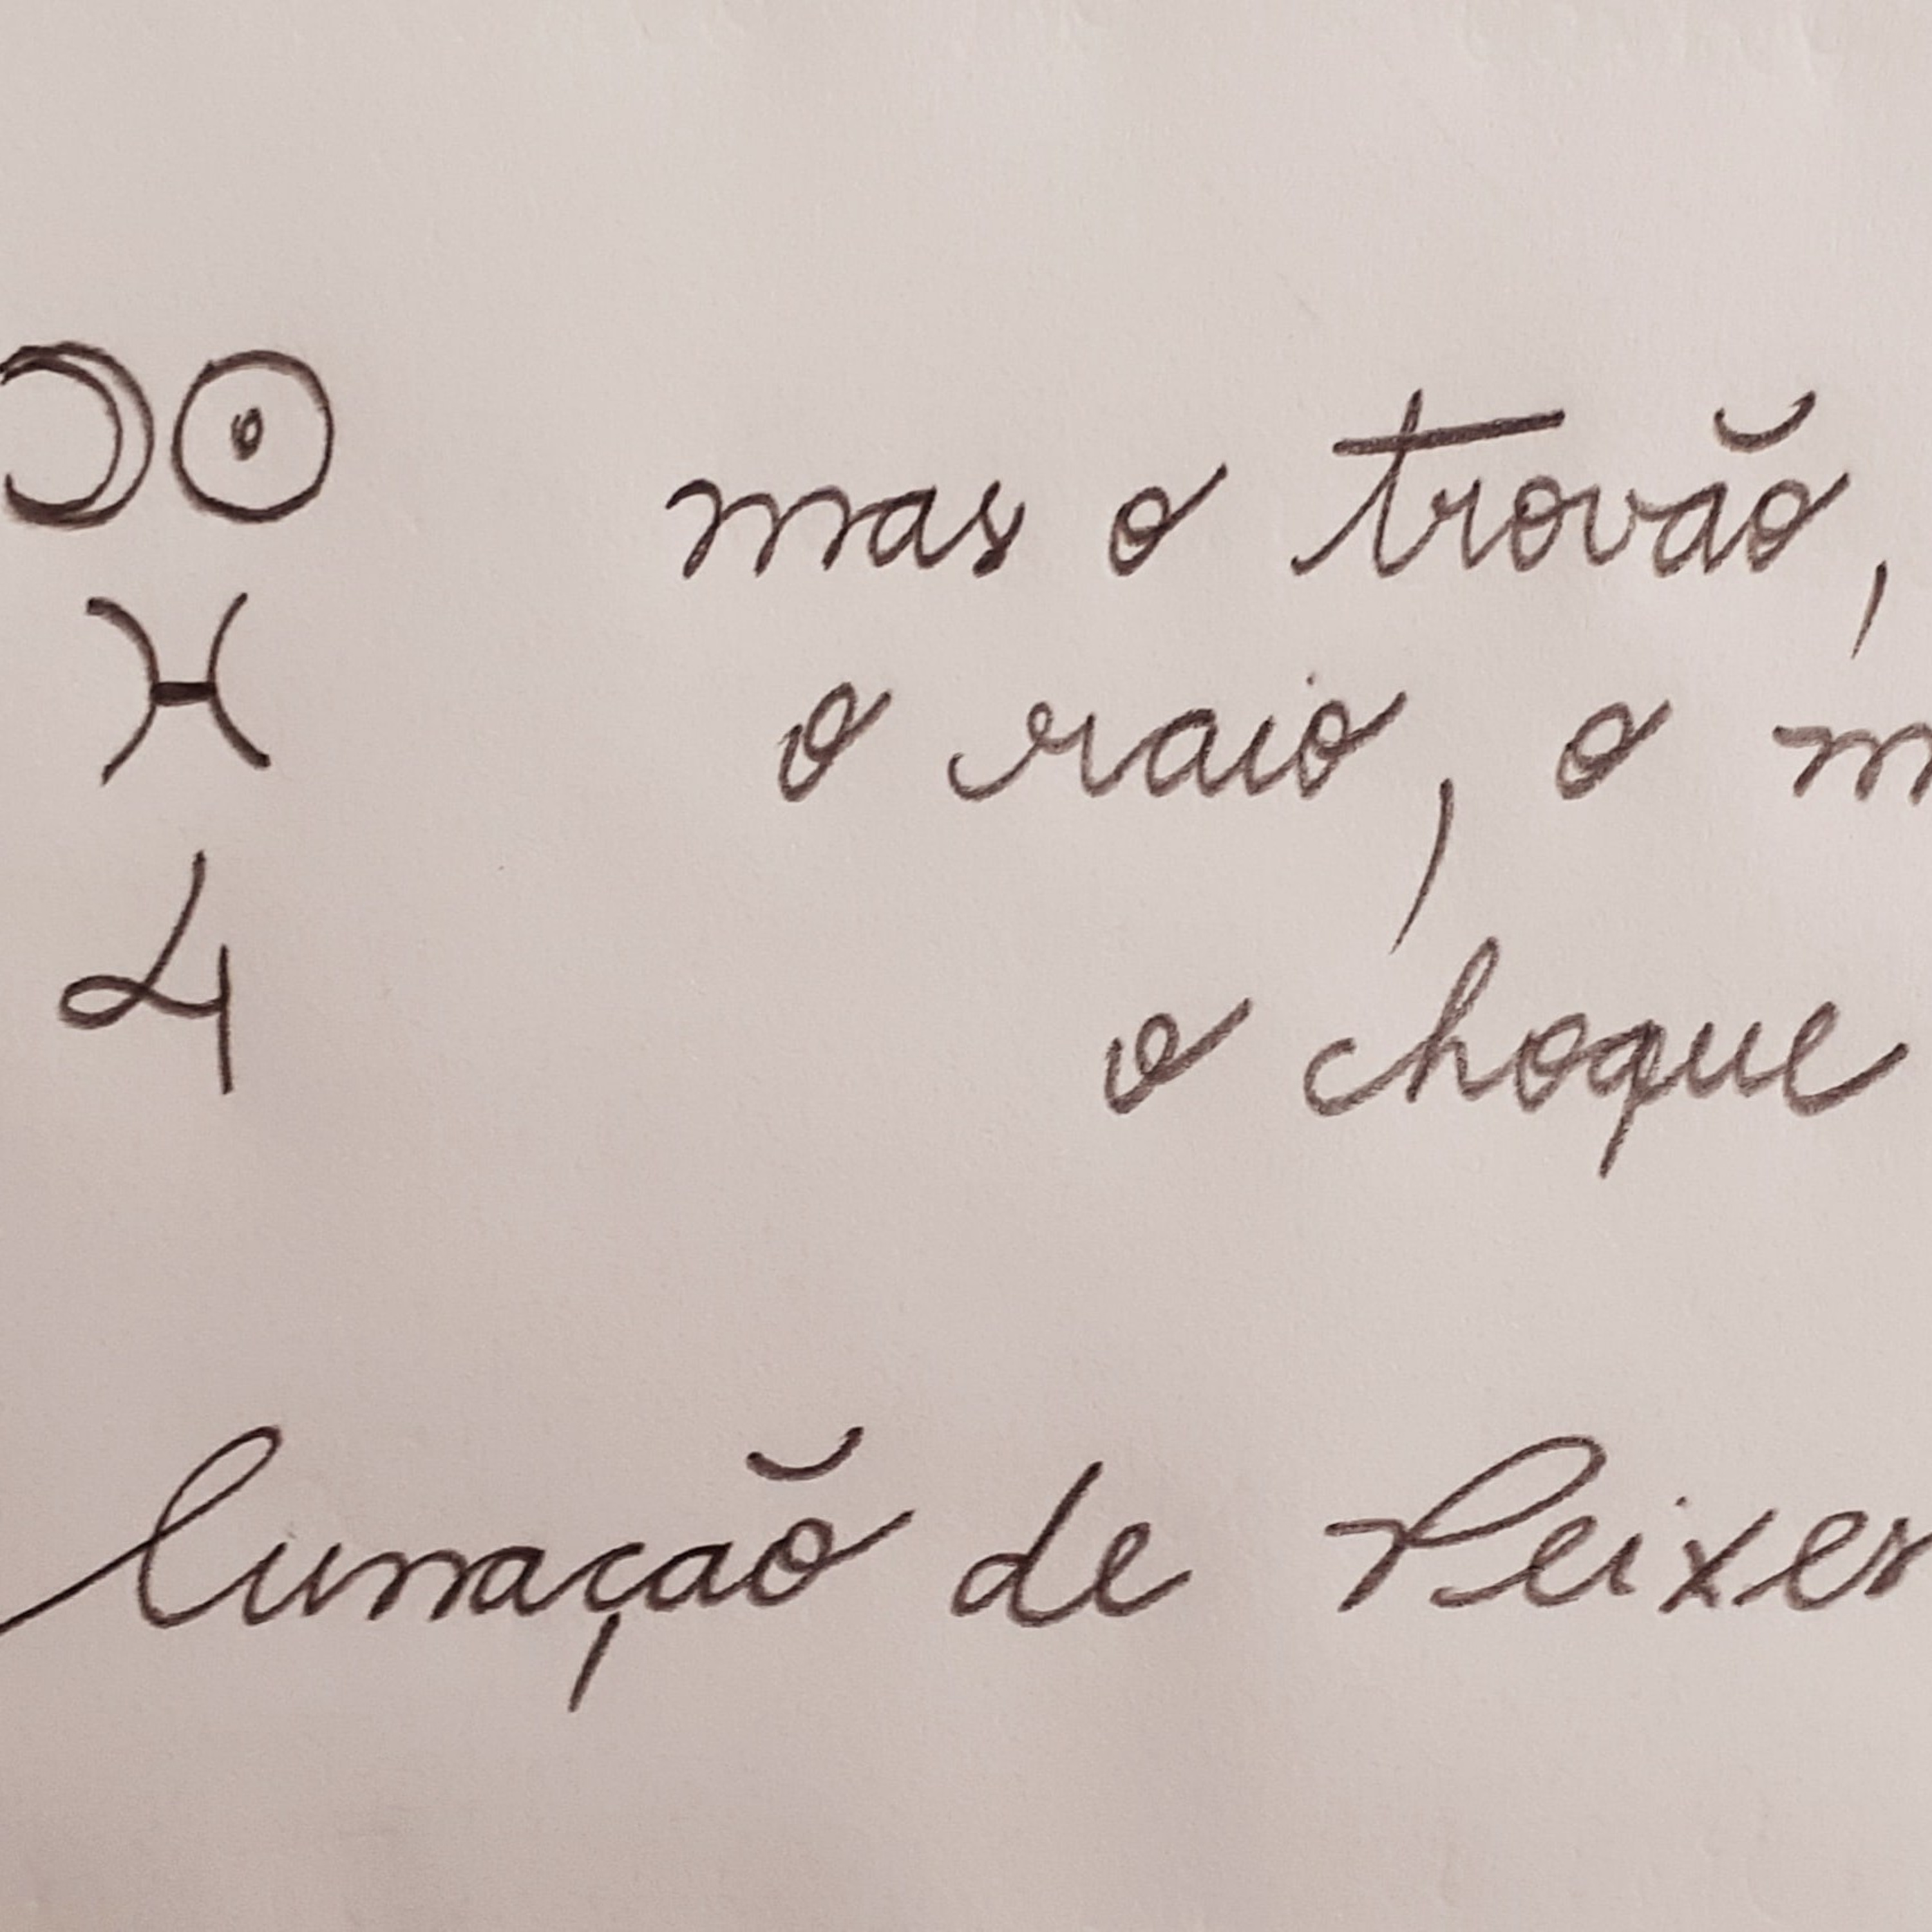 ☽☉ mas o trovão,
♓ o raio, o m
♃ o choque
lunação de Peixes